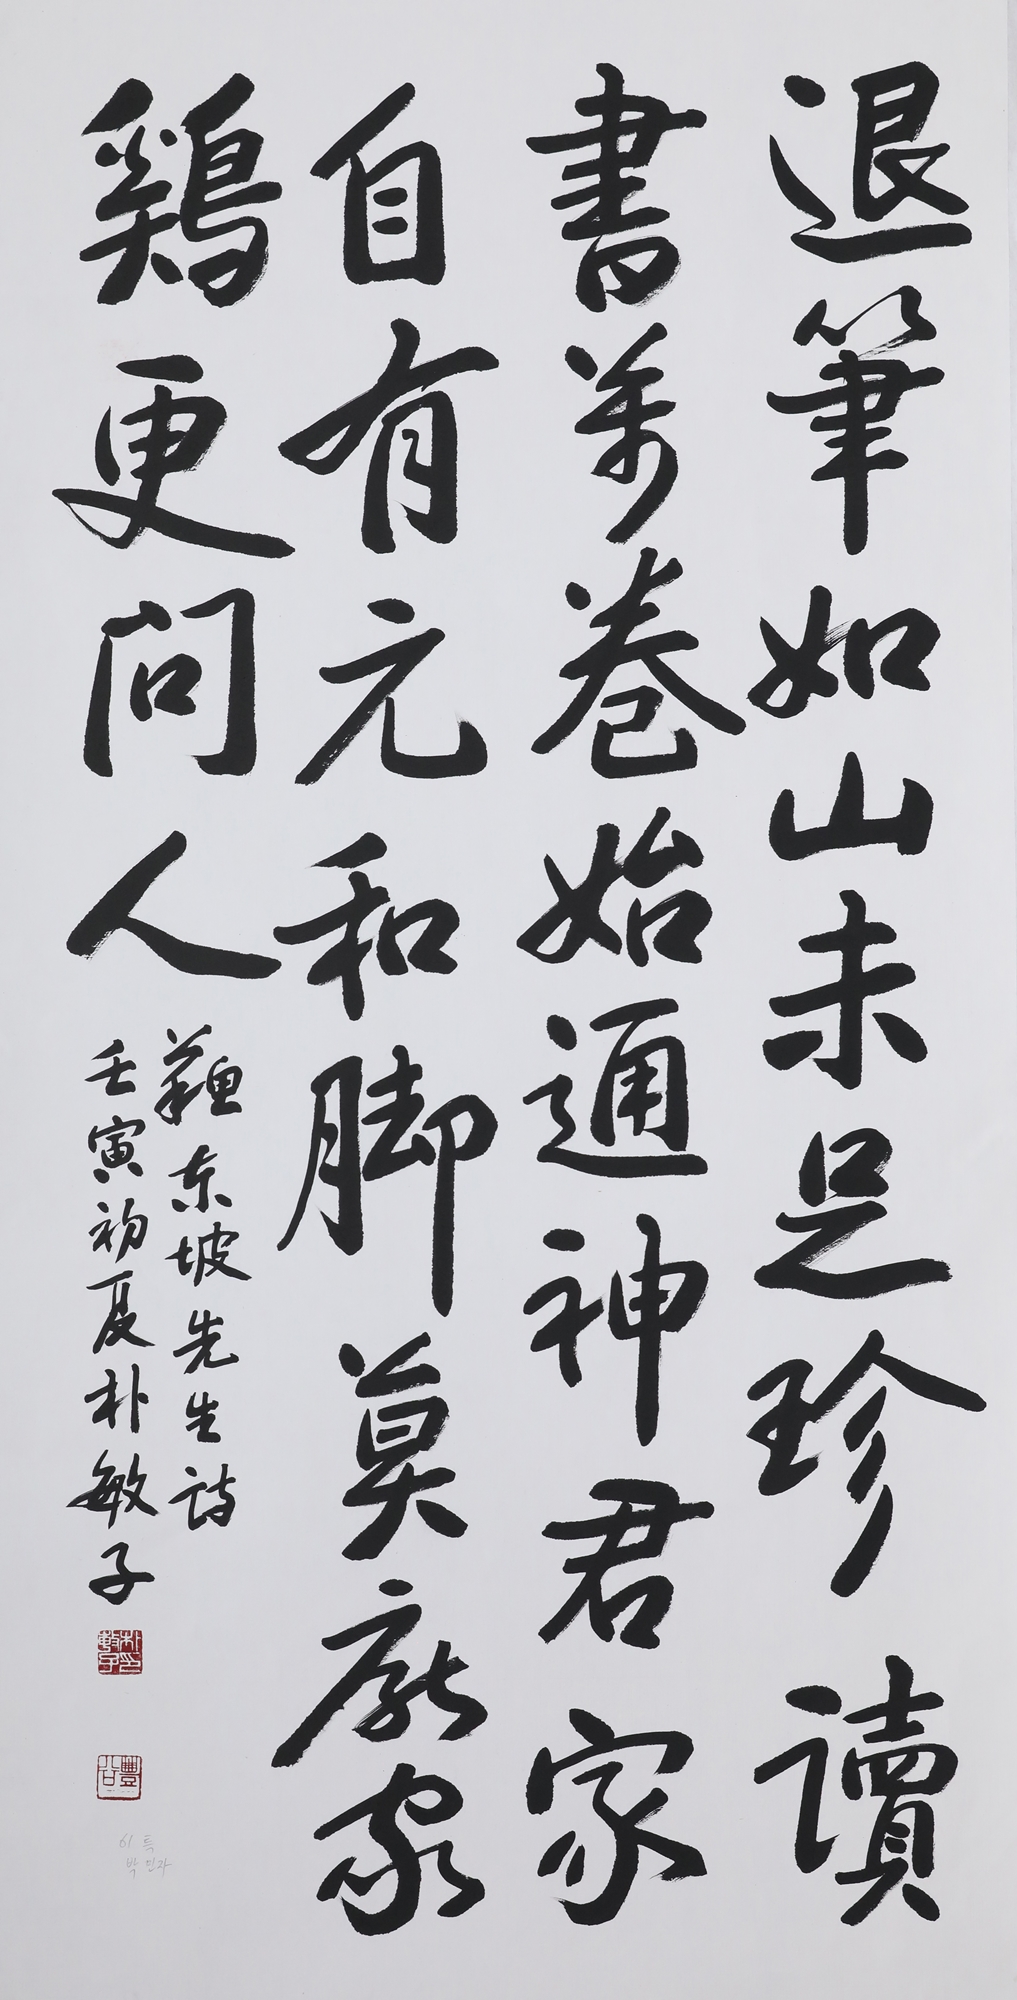 退筆如山未足珍讀
書萬卷始通神君家
自有元和脚莫厭家
鷄更問人
蘇東坡先生詩
壬寅初夏朴敏子
朴敏子印
豐谷
61 특
박민자